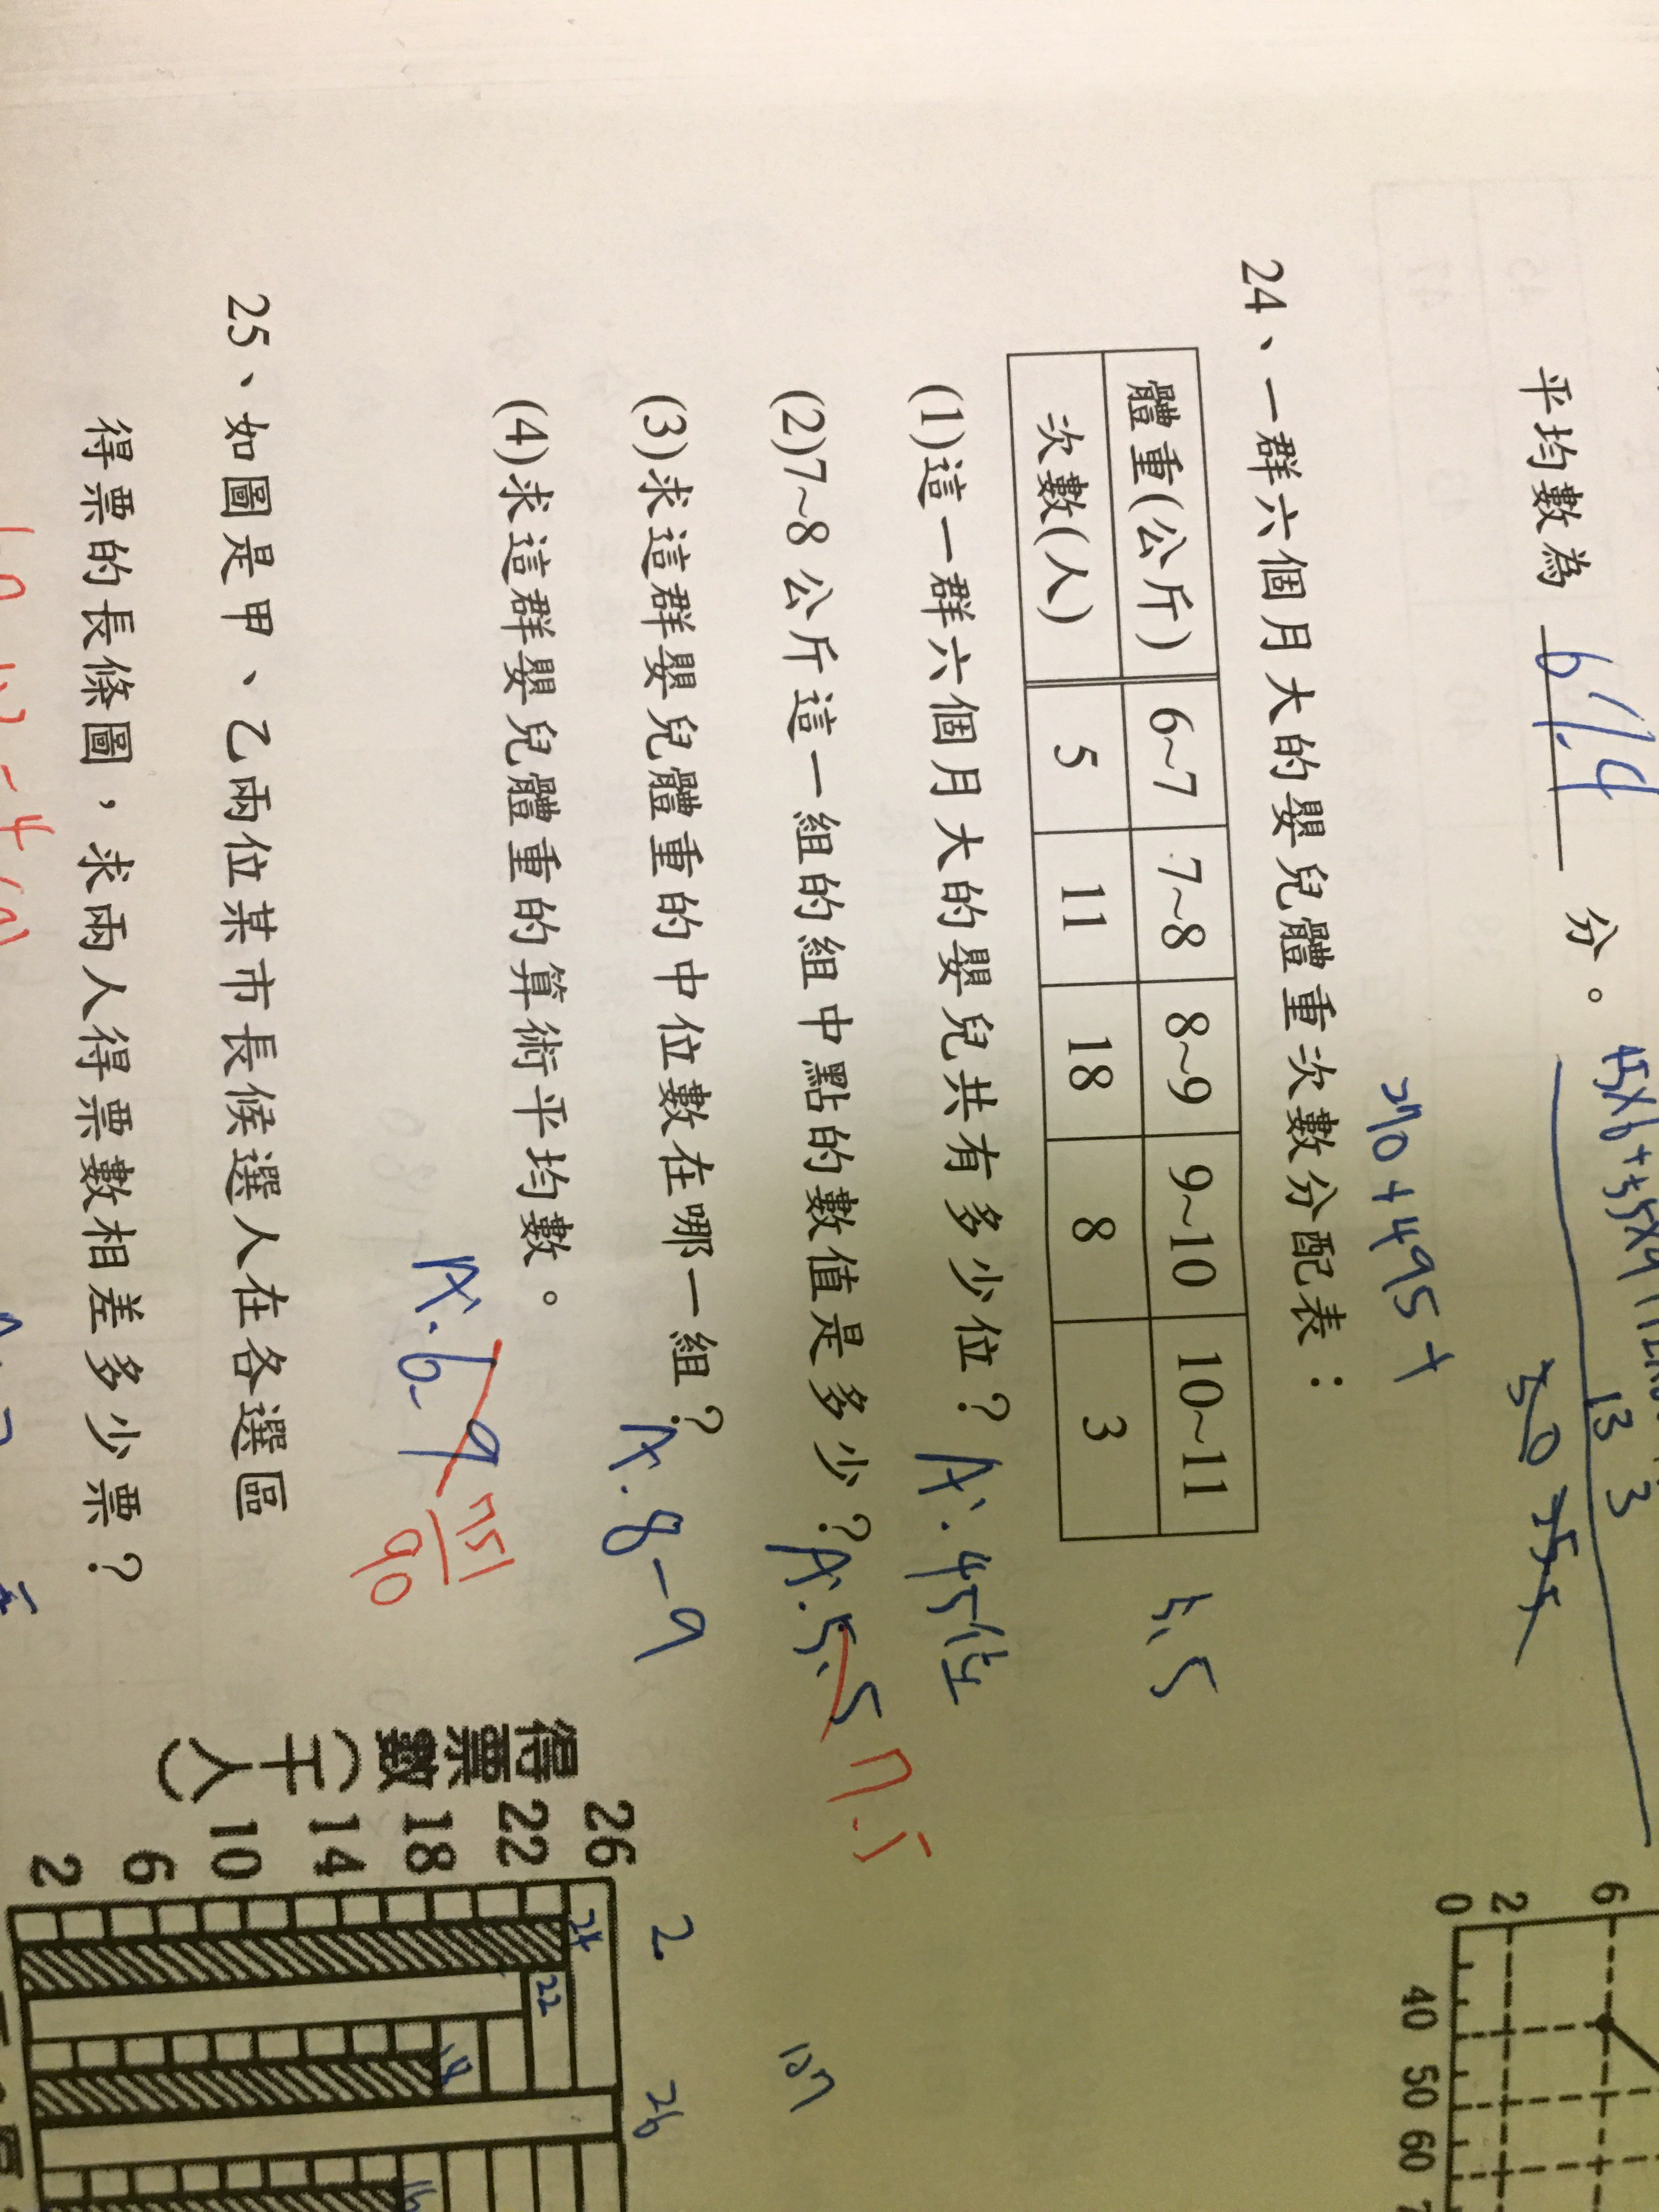 平均數為 61.4 分。
270+495+
24、一群六個月大的嬰兒體重次數分配表：
體重(公斤) 6~7 7~8 8~9 9~10 10~11
次數(人) 5 11 18 8 3
5.5
(1)這一群六個月大的嬰兒共有多少位？A. 45位
(2)7~8公斤這一組的組中點的數值是多少？A. 5.5 7.5
(3)求這群嬰兒體重的中位數在哪一組？A. 8-9
(4)求這群嬰兒體重的算術平均數。
A. 6-9 751/90
25、如圖是甲、乙兩位某市長候選人在各選區
得票的長條圖，求兩人得票數相差多少票？
得票數(千人)
26
22
18
14
10
6
2
2 26
24 22 18 16
6
2
0
40 50 60